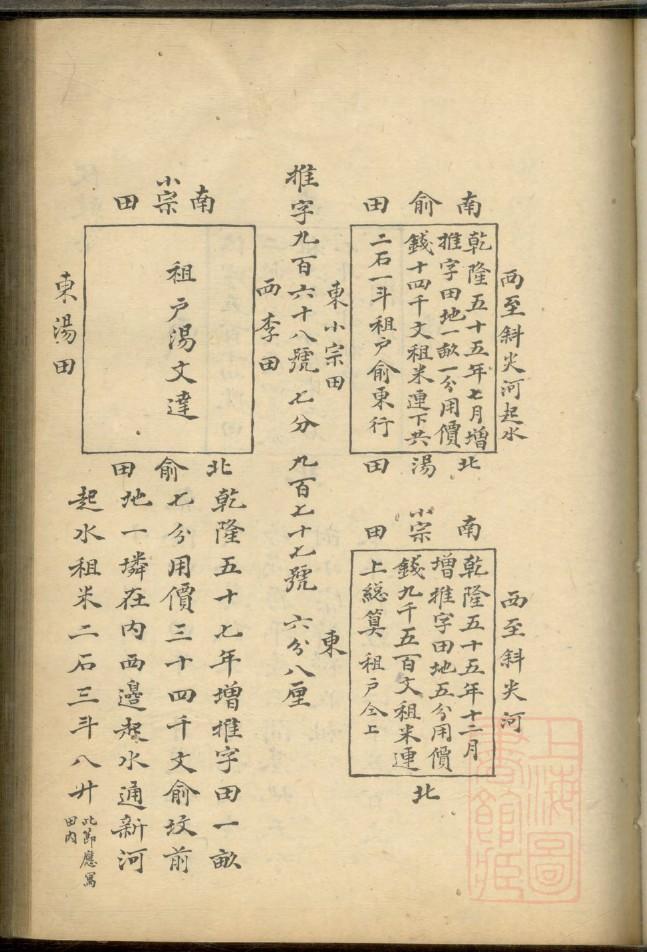 西至斜尖河起水
南
俞
田
乾隆五十五年七月增
推字田地一畝一分用價
錢十四千文租米連下共
二石一斗租戶俞東行
北
湯
田
東小宗田
西至斜尖河
南
小宗
田
乾隆五十五年十二月
增推字田地五分用價
錢九千五百文租米連
上総算 租戶仝上
北
東
推字九百六十八號 七分 九百七十七號 六分八厘
西李田
南
小宗
田
租戶湯文達
東湯田
北
俞
田
乾隆五十七年增推字田一畝
七分用價三十四千文俞坟前
地一墳在内西邊起水通新河
起水租米二石三斗八廾
此節應寫
田内
上海圖
書館藏